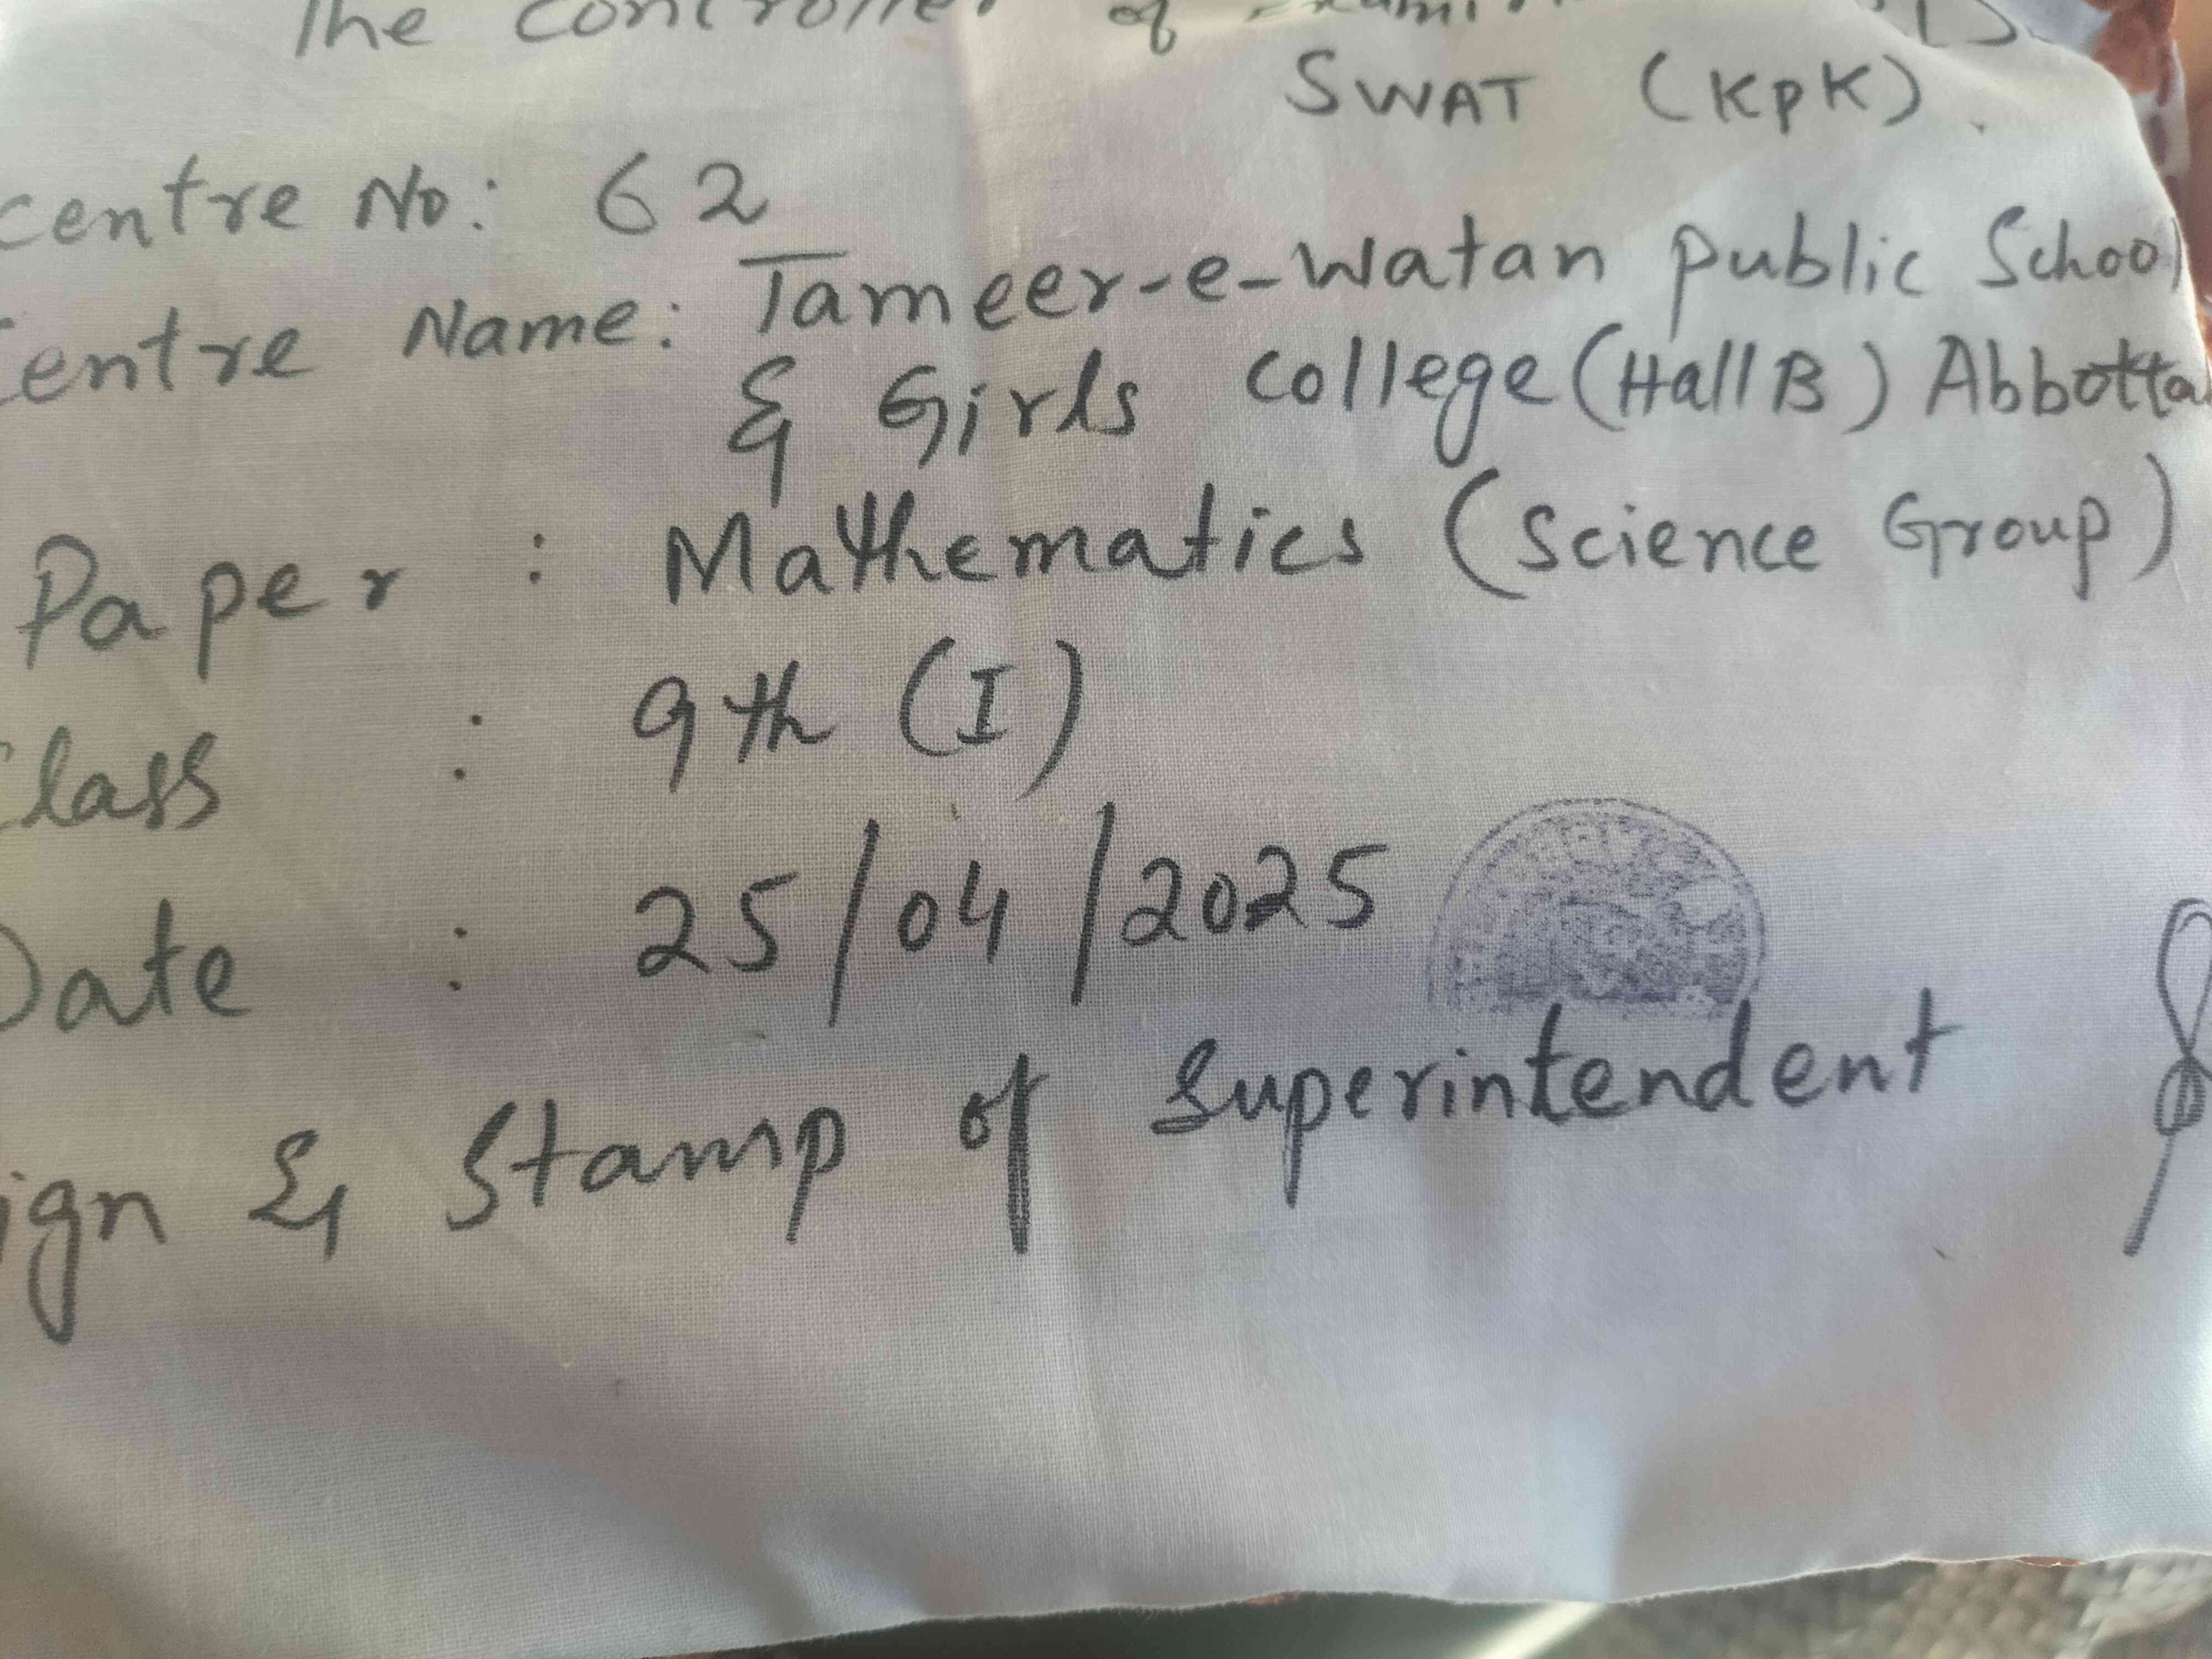 The Controller of
SWAT (KPK).
Centre No: 62
Centre Name: Tameer-e-Watan Public School
& Girls College (Hall B) Abbotta
Paper : Mathematics (Science Group)
Class : 9th (I)
Date : 25/04/2025
ign & Stamp of Superintendent